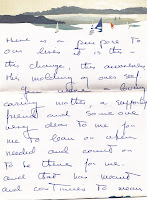 There is a purpose to
our lives it is this -
this change, this awareness
this molding of ones self
you were a loving
caring mother, a
friend and someone
very dear to me for
me to lean on when
needed and count on
to be there for me.
and that has meant
and continues to mean